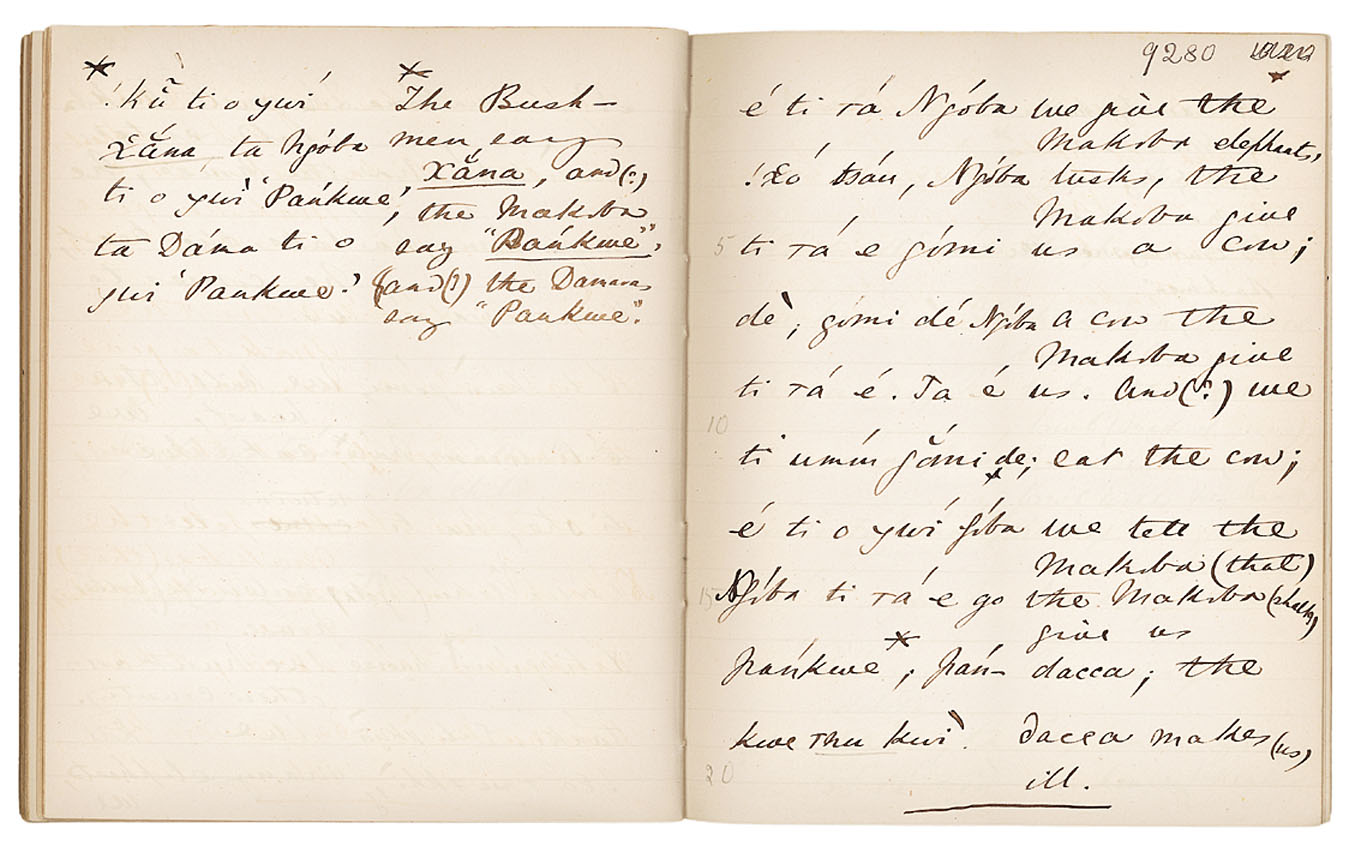 ! Kũ ti o ywí
Xăna ta Ngóba
ti o ywì 'Pańkwe',
ta Dáma ti o
ywi 'Pankwe'.
The Bush-
men say
Xăna, and(?)
the Makoba
say "Pańkwe",
(and(?) the Damaras
say "Pankwe".
9280
é ti rá Ngóba we give the
Makoba elephants,
!Xó tsáu, Ngóba tusks, the
Makoba give
5 ti rá e gúmi us a cow;
dè, gúmi dé Ngóba a cow the
Makoba give
ti rá é. Ta é us. And(?) we
10
ti umúm gúmi de; eat the cow;
é ti o ywí Góba we tell the
Makoba (that)
15 Ngóba ti rá e go the Makoba (shall)
give us
pańkwe; pań- dacca; the
kwe rhu kwì. dacca makes (us)
20 ill.